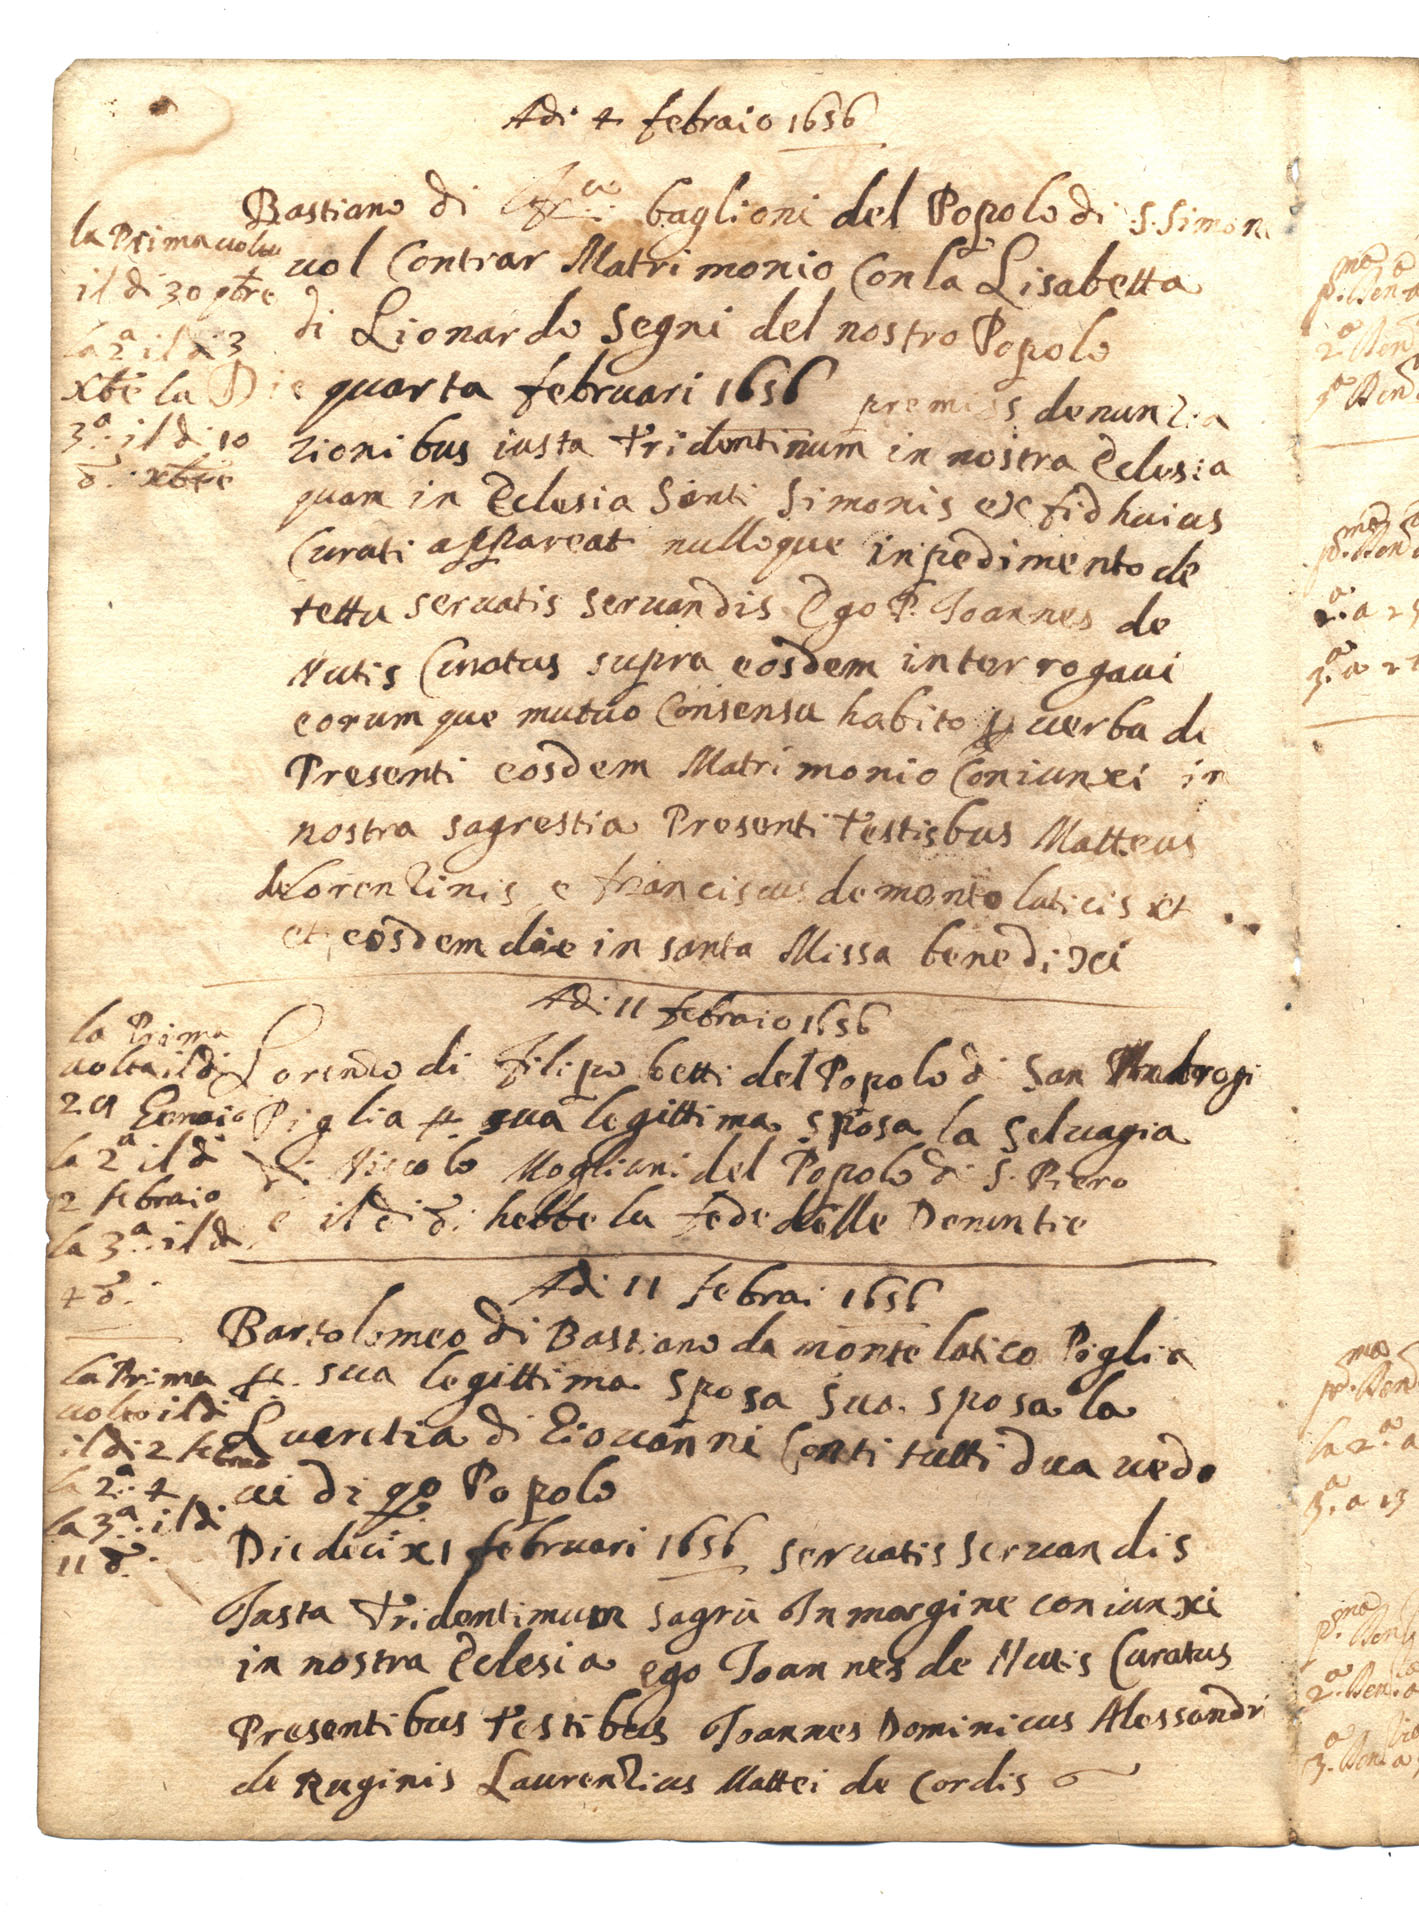 Adi 4 febraio 1656
Bastiano di baglioni del Popolo di S. Simon
la Prima uolta
il di 30 9bre
la 2a il di 3
xbre la
3a il di 10
d. xbre
uol Contrar Matrimonio Con la Lisabetta
di Lionardo Segni del nostro Popolo
Die quarta februari 1656 premisis denunzia
zionibus iusta tridentinum in nostra Eclesia
quam in Eclesia Santi Simonis ex fid huius
Curati appareat nulloque inpedimento de
tettu seruatis seruandis Ego P. Joannes de
Nutis Curatus supra eosdem interrogaui
eorumque mutuo Consensu habito p uerba de
Presenti eosdem Matrimonio Coniunxi in
nostra sagrestia Presenti testisbus Matteus
de Lorenzinis e franciscus de monte laticis et
et eosdem die in santa Missa benedixi
Adi 11 febraio 1656
la Prima
uolta il di
29 Gennaio
la 2a il di
2 febraio
la 3a il di
4 d.
Lorenzo di filipo betti del Popolo di San Ambrogi
Piglia p. sua legittima sposa la Seluagia
di Niccolo Mogliani del Popolo di S. Piero
e il di d. hebbe la fede delle Denuntie
Adi 11 febrai 1656
la Prima
uolta il di
il di 2 febraio
la 2a 4
la 3a il di
11 d.
Bartolomeo di Bastiano da monte latico Piglia
p. sua legittima sposa sua sposa la
Lucretia di Giouanni Conti tutti dua uedo
ui di qo Popolo
Die deci x1 februari 1656 seruatis seruandis
Justa tridentinum sagru In margine coniunxi
in nostra Eclesia ego Joannes de Nutis Curatus
Presentibus testibus Joannes Dominicus Alessandri
de Ruginis Laurenzius Mattei de Cordis